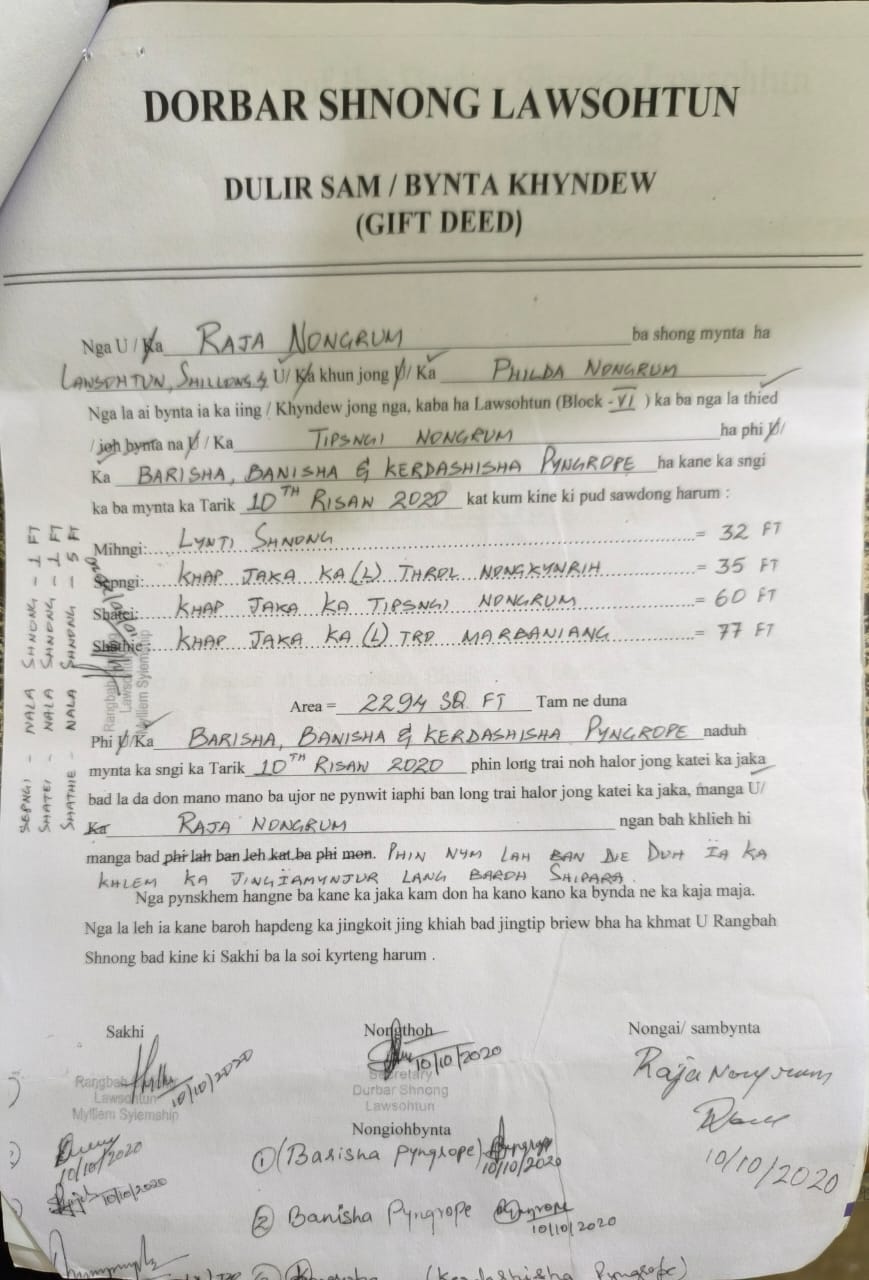 DORBAR SHNONG LAWSOHTUN
DULIR SAM / BYNTA KHYNDEW
(GIFT DEED)
Nga U / Ka RAJA NONGRUM ba shong mynta ha
LAWSOHTUN, SHILLONG U/ Ka khun jong U/ Ka PHILDA NONGRUM
Nga la ai bynta ia ka iing / Khyndew jong nga, kaba ha Lawsohtun (Block - VI ) ka ba nga la thied
/ joh bynta na U / Ka TIPSNGI NONGRUM ha phi U/
Ka BARISHA, BANISHA & KERDASHISHA PYNGROPE ha kane ka sngi
ka ba mynta ka Tarik 10TH RISAW 2020 kat kum kine ki pud sawdong harum :
Mihngi: LYNTI SHNONG = 32 FT
Sepngi: KHAP JAKA KA (L) THROL NONGKYNRIH = 35 FT
Shatei: KHAP JAKA KA TIPSNGI NONGRUM = 60 FT
Shathie: KHAP JAKA KA (L) TRD MARBANIANG = 77 FT
SEPNGI - NALA SHNONG - 1 FT
SHATEI - NALA SHNONG - 1 FT
SHATHIE - NALA SHNONG - 5 FT
Rangbah
Lawsohtun
Mylliem Syiemship
Area = 2294 SQ. FT Tam ne duna
Phi U/Ka BARISHA, BANISHA & KERDASHISHA PYNGROPE naduh
mynta ka sngi ka Tarik 10TH RISAW 2020 phin long trai noh halor jong katei ka jaka
bad la da don mano mano ba ujor ne pynwit iaphi ban long trai halor jong katei ka jaka, manga U/
Ka RAJA NONGRUM ngan bah khlieh hi
manga bad phi lah ban leh kat ba phi mon. PHIN NYM LAH BAN DIE DUH IA KA
KHLEM KA JINGIAMYNJUR LANG BAROH SHIPARA.
Nga pynskhem hangne ba kane ka jaka kam don ha kano kano ka bynda ne ka kaja maja.
Nga la leh ia kane baroh hapdeng ka jingkoit jing khiah bad jingtip briew bha ha khmat U Rangbah
Shnong bad kine ki Sakhi ba la soi kyrteng harum .
Sakhi
Rangbah
Lawsohtun
Mylliem Syiemship
10/10/2020
10/10/2020
10/10/2020
Nongthoh
10/10/2020
Secretary
Durbar Shnong
Lawsohtun
Nongai/ sambynta
Raja Nongrum
10/10/2020
Nongiohbynta
1 (Barisha Pyngrope)
10/10/2020
2 Banisha Pyngrope
10/10/2020
(Kerdashisha Pyngrope)